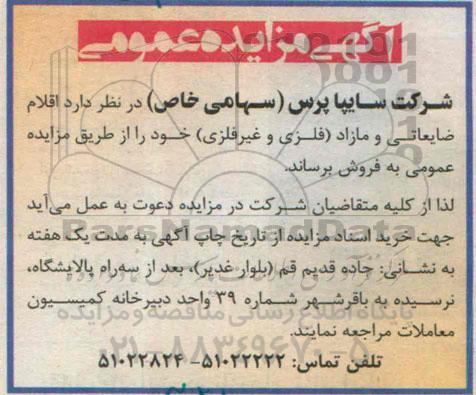 آگهی مزایده عمومی
شرکت سایپا پرس (سهامی خاص) در نظر دارد اقلام
ضایعاتی و مازاد (فلزی و غیرفلزی) خود را از طریق مزایده
عمومی به فروش برساند.
لذا از کلیه متقاضیان شرکت در مزایده دعوت به عمل می‌آید
جهت خرید اسناد مزایده از تاریخ چاپ آگهی به مدت یک هفته
به نشانی: جاده قدیم قم (بلوار غدیر)، بعد از سه‌راه پالایشگاه،
نرسیده به باقرشهر شماره ۳۹ واحد دبیرخانه کمیسیون
معاملات مراجعه نمایند.
تلفن تماس: ۵۱۰۲۲۲۲۲- ۵۱۰۲۲۸۲۴
ParsNamadData
پایگاه اطلاع رسانی مناقصه و مزایده
۰۲۱-۸۸۳۴۹۶۷۰-۵